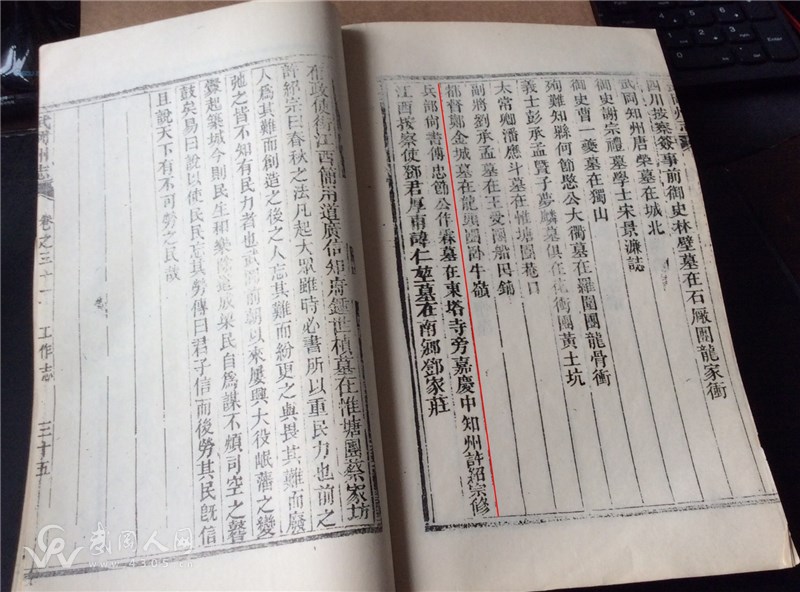 四川按察簽事前御史林壁墓在石厫團龍家衝
武岡知州唐榮墓在城北
御史謝宗禮墓學士宋景濂誌
御史曹一夔墓在獨山
殉難知縣何節愍公大衢墓在羅團團龍骨衝
義士彭承孟賢子夢麟墓俱在花衝團黃土坑
太常卿潘應斗墓在惟塘團巷口
副將劉承孟墓在玉受團船民鋪
都督鄭金城墓在龍頭團臥牛嶺
兵部尚書傅忠節公作霖墓在東塔寺旁嘉慶中知州許紹宗修
江西按察使鄧君厚甫諱仁堃墓在南鄉鄧家莊
布政使銜江西饒南道廣信知府鍾世楨墓在惟塘團蔡家坊
許紹宗曰春秋之法凡起大眾雖時必書所以重民力也前之
人為其難而創造之後之人忘其難而紛更之與畏其難而廢
弛之皆不知有民力者也武岡前朝以來屢興大役岷藩之變
爨起築城今則民生和樂修道成梁民自為謀不煩司空之聲
鼓矣易曰說以使民民忘其勞傳曰君子信而後勞其民既信
且說天下有不可勞之民哉
武岡州志
卷之三十一
工作志
三十五
武冈人网
www.4305.com